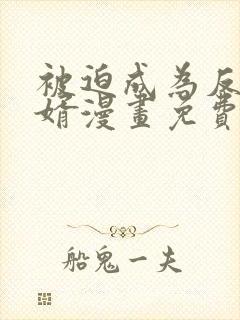 被迫成為反
婿漫畫免費
船鬼一夫